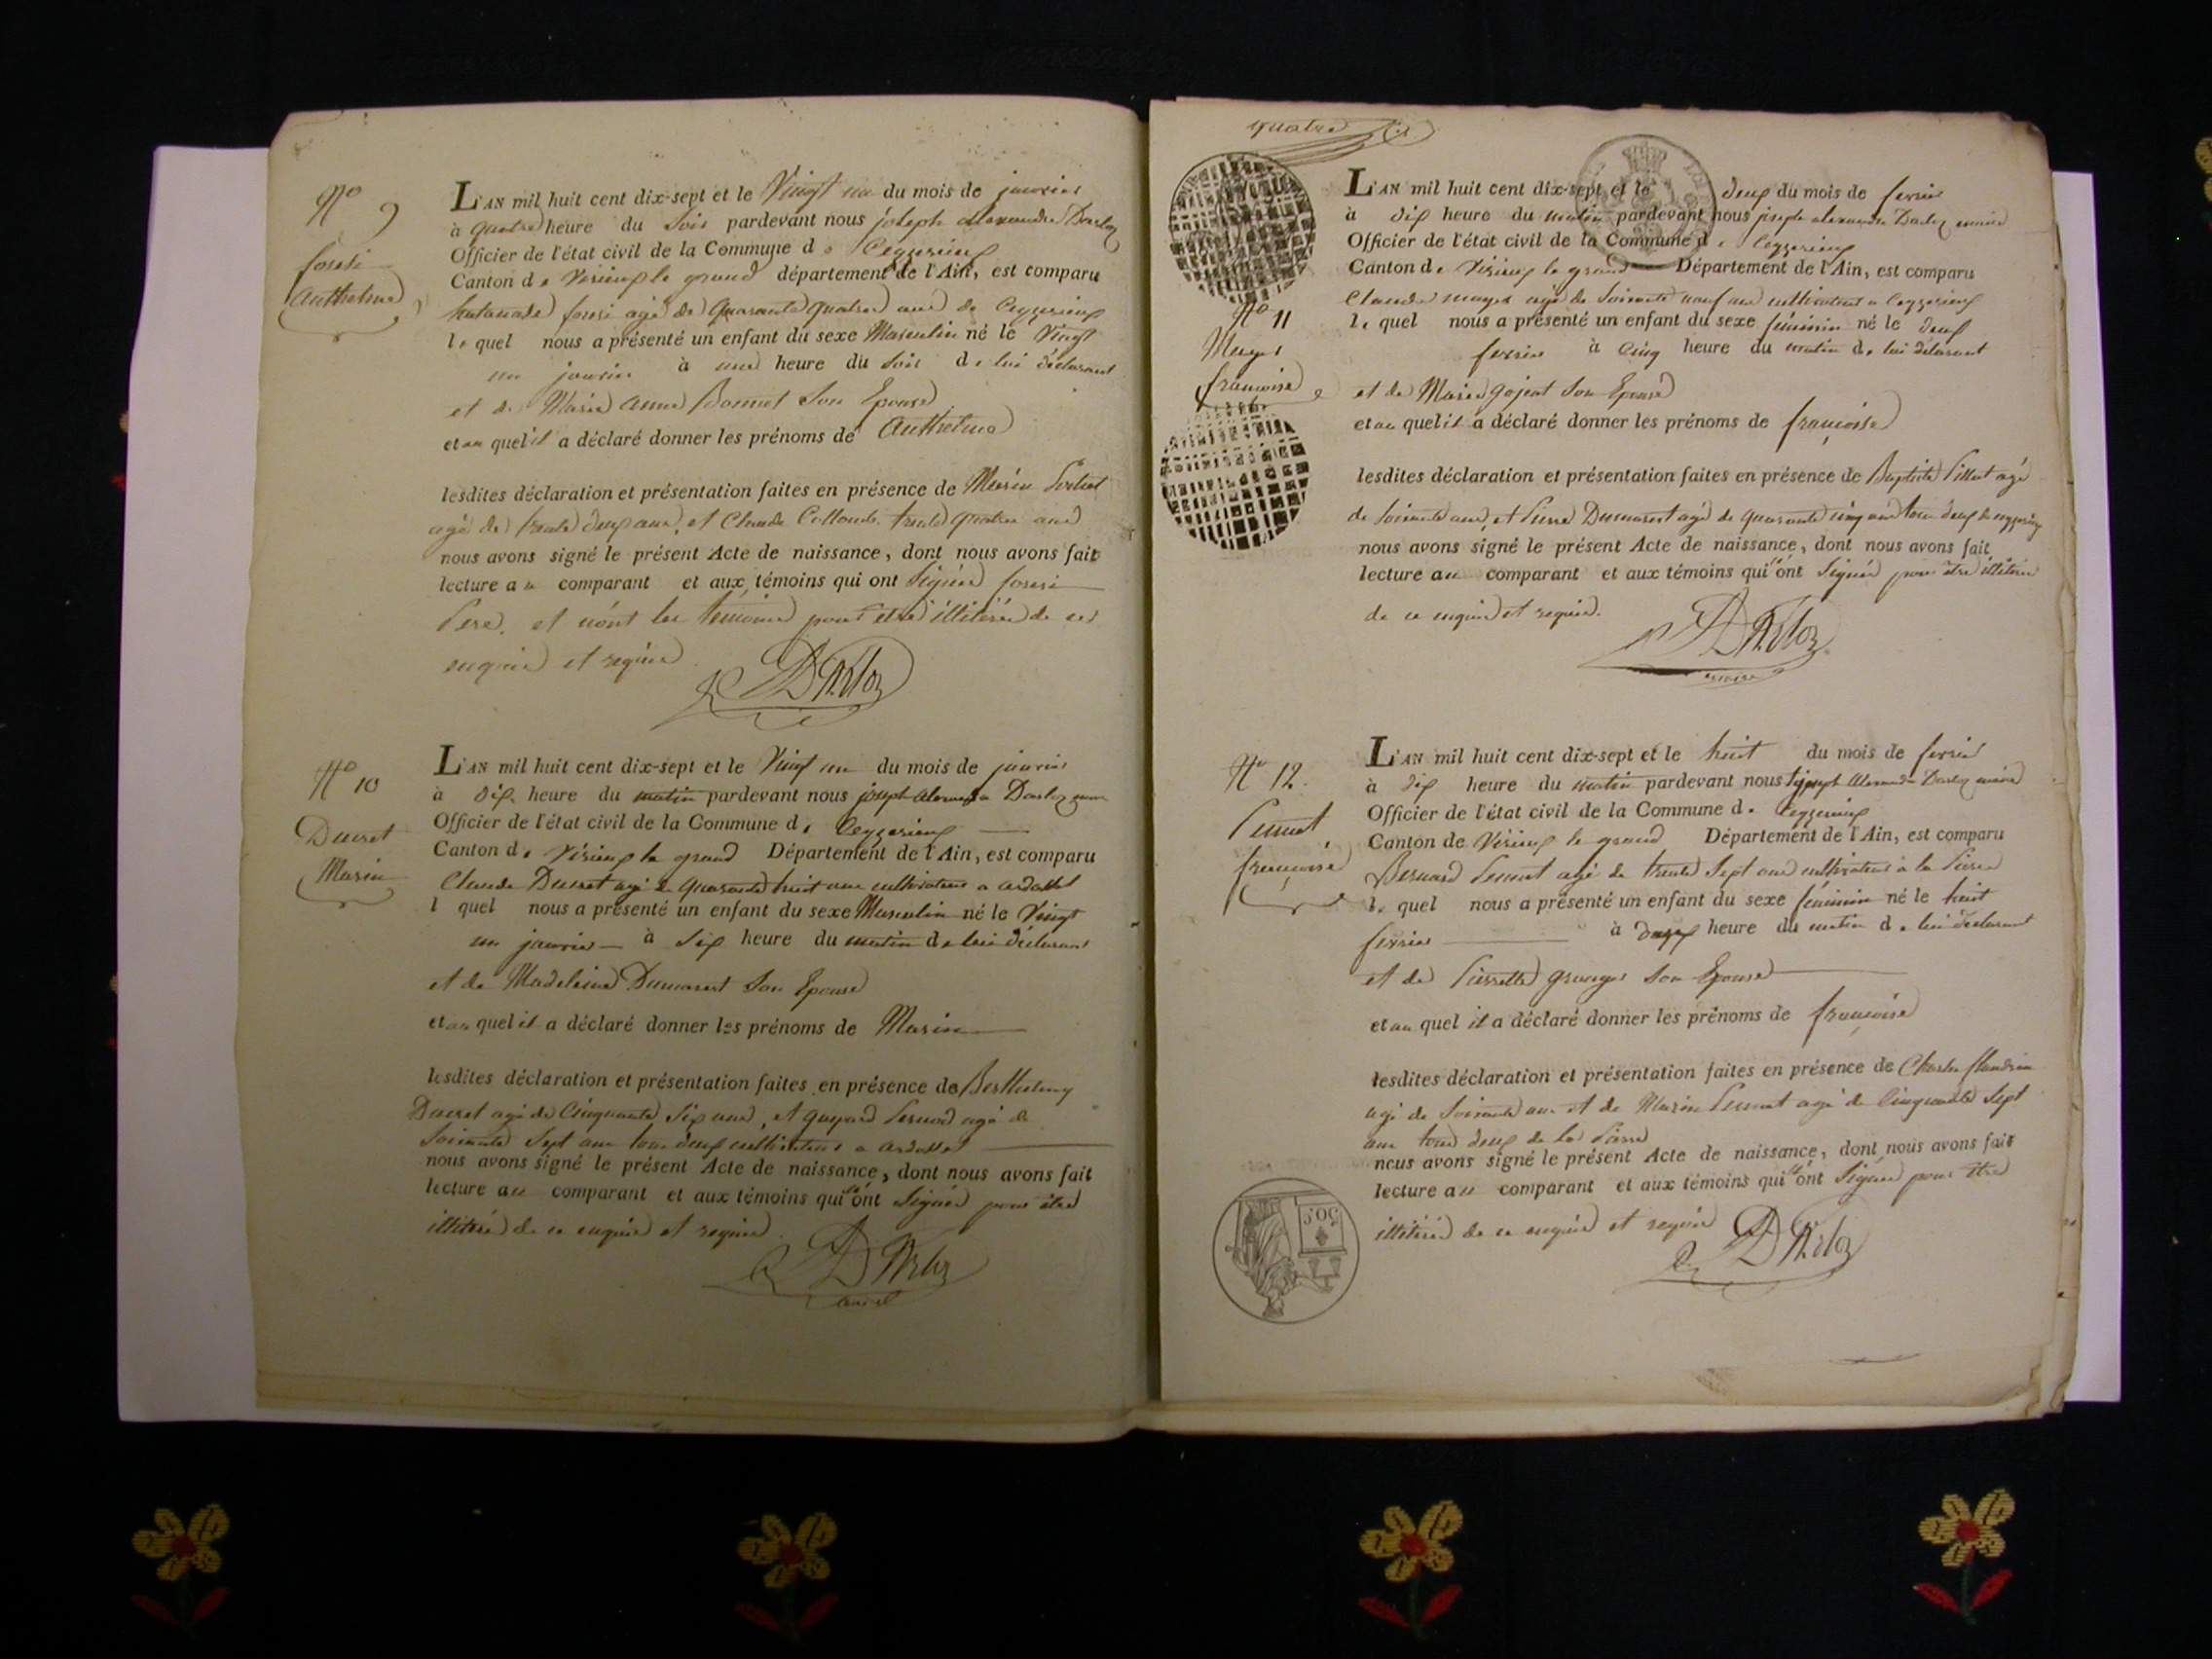 N° 9
foresi
Anthelme
L'AN mil huit cent dix-sept et le Vingt un du mois de janvier
à quatre heure du Soir pardevant nous joseph alexandre Darloz
Officier de l'état civil de la Commune de Ceyzerieux
Canton de Virieux le grand département de l'Ain, est comparu
foresi agé de quarante quatre ans de Ceyzerieux
le quel nous a présenté un enfant du sexe Masculin né le Vingt
un janvier à une heure du Soir de lui déclarant
et de Marie anne Bonnet Son Epouse
et au quel il a déclaré donner les prénoms de Anthelme
lesdites déclaration et présentation faites en présence de Marin
agé de trente deux ans, et Claude Collomb trente quatre ans
nous avons signé le présent Acte de naissance, dont nous avons fait
lecture au comparant et aux témoins qui ont Signé foresi
Pere. et n'ont les témoins pour etre illitéré de ce
enquis et requis
Darloz
N° 10
Ducret
Marin
L'AN mil huit cent dix-sept et le Vingt un du mois de janvier
à dix heure du matin pardevant nous joseph alexandre Darloz maire
Officier de l'état civil de la Commune de Ceyzerieux
Canton de Virieux le grand Département de l'Ain, est comparu
Claude Ducret agé de quarante huit ans cultivateur a ardosset
l quel nous a présenté un enfant du sexe Masculin né le Vingt
un janvier à Six heure du matin de lui déclarant
et de Madeleine Dumarest Son Epouse
et au quel il a déclaré donner les prénoms de Marin
lesdites déclaration et présentation faites en présence de Berthelemy
Ducret agé de Cinquante Six ans, et gaspard agé de
Soixante Sept ans tous deux cultivateurs a ardosset
nous avons signé le présent Acte de naissance, dont nous avons fait
lecture au comparant et aux témoins qui n'ont Signé pour être
illitéré de ce enquis et requis
Darloz
maire
quatre
N° 11
Mayer
françoise
L'AN mil huit cent dix-sept et le deux du mois de fevrier
à dix heure du matin pardevant nous joseph alexandre Darloz maire
Officier de l'état civil de la Commune de Ceyzerieux
Canton de Virieux le grand Département de l'Ain, est comparu
Claude mayer agé de Soixante neuf ans cultivateur a Ceyzerieux
le quel nous a présenté un enfant du sexe féminin né le deux
fevrier à Cinq heure du matin de lui déclarant
et de Marie gojent Son Epouse
et au quel il a déclaré donner les prénoms de françoise
lesdites déclaration et présentation faites en présence de Baptiste agé
de Soixante ans, et Pierre Dumarest agé de quarante cinq ans tous deux de ceyzerieux
nous avons signé le présent Acte de naissance, dont nous avons fait
lecture au comparant et aux témoins qui n'ont Signé pour être illitéré
de ce enquis et requis.
Darloz
maire
N° 12.
françoise
L'AN mil huit cent dix-sept et le huit du mois de fevrier
à dix heure du matin pardevant nous joseph Alexandre Darloz maire
Officier de l'état civil de la Commune de Ceyzerieux
Canton de Virieux le grand Département de l'Ain, est comparu
Bernard agé de trente Sept ans cultivateur à la Pierre
le quel nous a présenté un enfant du sexe féminin né le huit
fevrier à heure du matin de lui déclarant
et de Pierrette granger Son Epouse
et au quel il a déclaré donner les prénoms de françoise
lesdites déclaration et présentation faites en présence de Charles flandrin
agé de Soixante ans et de Marin agé de Cinquante Sept
ans tous deux de la Pierre
nous avons signé le présent Acte de naissance, dont nous avons fait
lecture au comparant et aux témoins qui n'ont Signé pour être
illitéré de ce enquis et requis
Darloz
50C